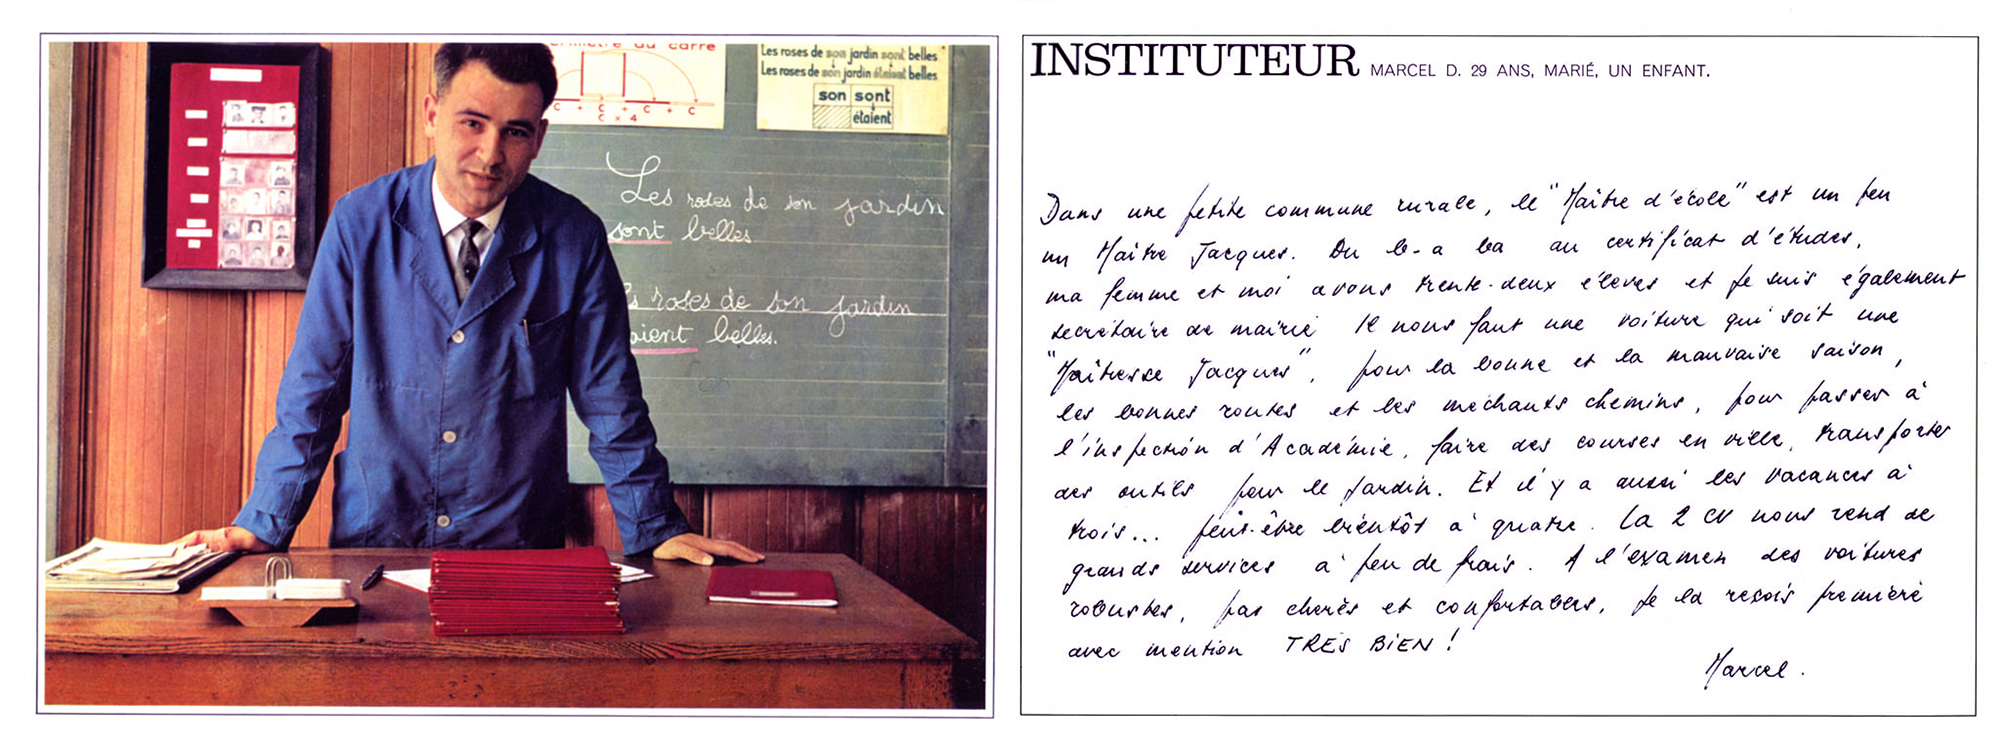 périmètre du carré
C + C + C + C
C x 4
Les roses de son jardin sont belles
Les roses de son jardin étaient belles
son sont
étaient
Les roses de son jardin
sont belles
s roses de son jardin
aient belles.
INSTITUTEUR MARCEL D. 29 ANS, MARIÉ, UN ENFANT.
Dans une petite commune rurale, le "Maître d'école" est un peu
un Maître Jacques. Du b-a ba au certificat d'études,
ma femme et moi avons trente-deux élèves et je suis également
secrétaire de mairie Il nous faut une voiture qui soit une
"Maîtresse Jacques", pour la bonne et la mauvaise saison,
les bonnes routes et les méchants chemins, pour passer à
l'inspection d'Académie, faire des courses en ville, transporter
des outils pour le jardin. Et il y a aussi les vacances à
trois... peut-être bientôt à quatre. La 2 CV nous rend de
grands services à peu de frais. A l'examen des voitures
robustes, pas chères et confortables, je la reçois première
avec mention TRES BIEN !
Marcel.